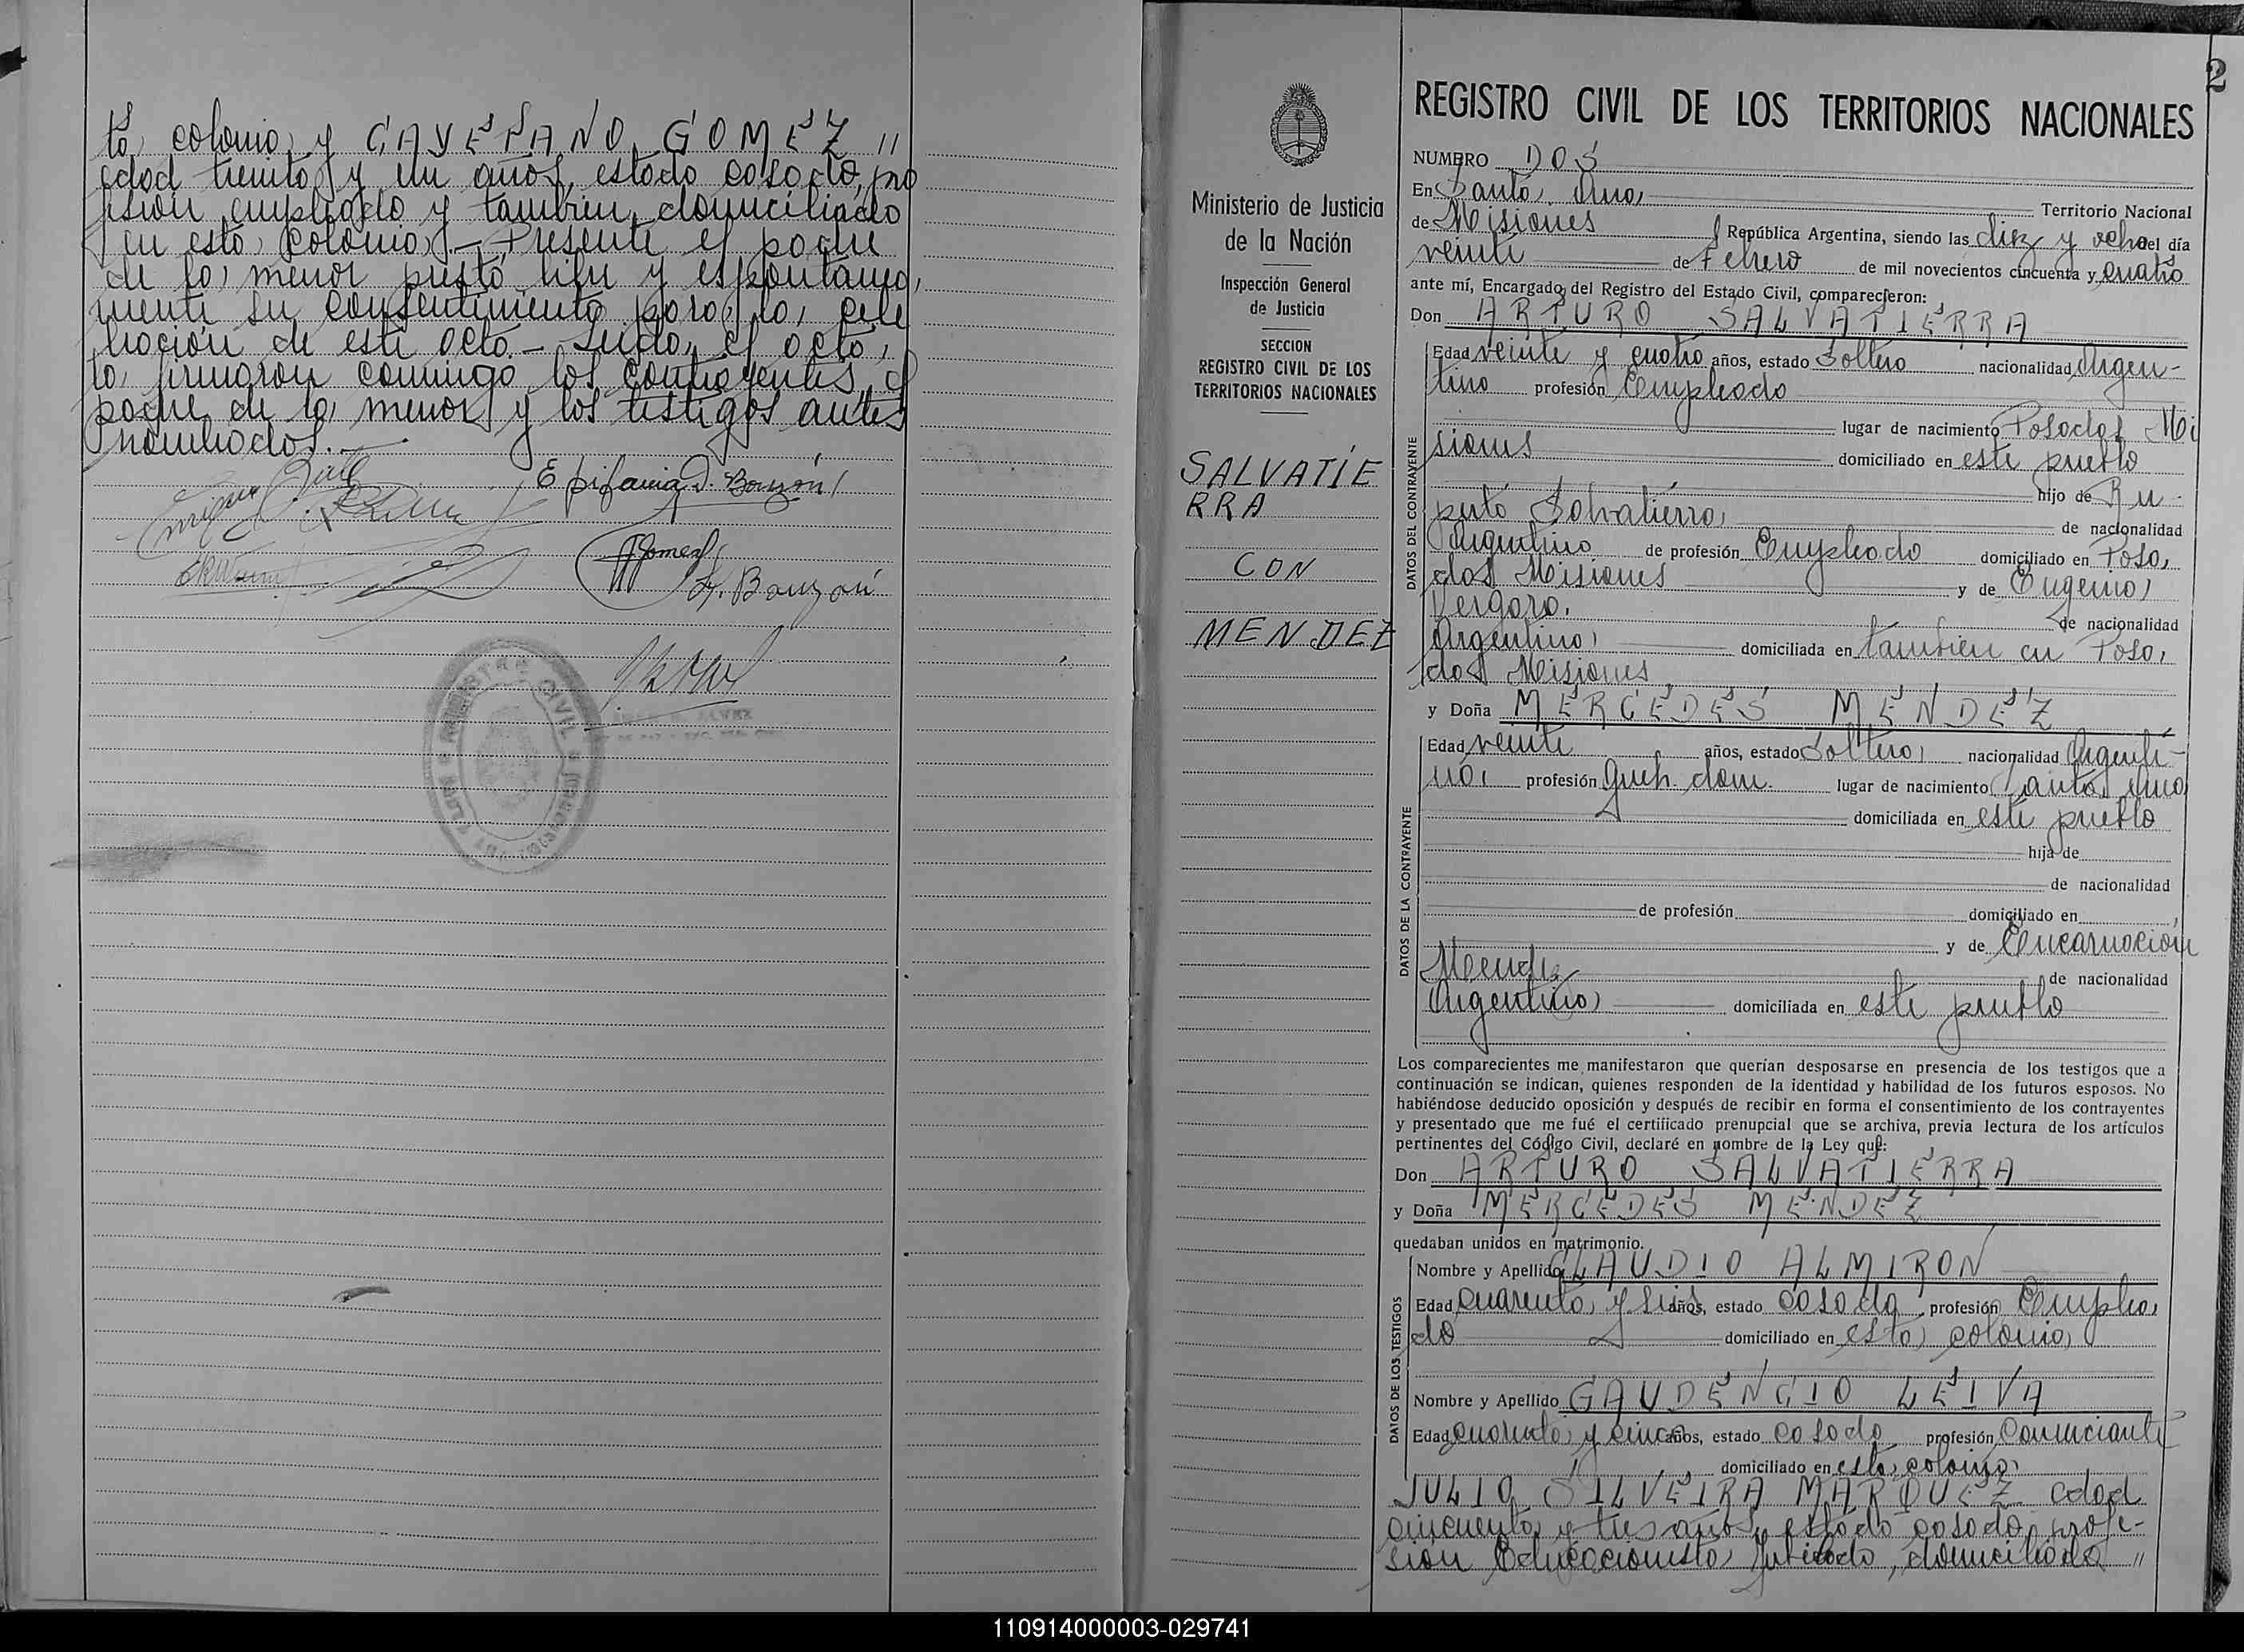 ta colonia y CAYETANO GOMEZ "
edad treinta y un años, estado casado, pro
fesión empleado y tambien domiciliado
en esta colonia.- Presente el padre
de la menor prestó libre y espontanea,
mente su consentimiento para la cele
bración de este acto.- Leida el acta,
la firmaron conmigo los contrayentes, el
padre de la menor y los testigos antes
nombrados.-
Epifania D. Banzon
Gomez
Banzon
REGISTRO CIVIL
2
Ministerio de Justicia
de la Nación
Inspección General
de Justicia
SECCION
REGISTRO CIVIL DE LOS
TERRITORIOS NACIONALES
SALVATIE
RRA
CON
MENDEZ
REGISTRO CIVIL DE LOS TERRITORIOS NACIONALES
NUMERO DOS
En Santa Ana, Territorio Nacional
de Misiones República Argentina, siendo las diez y ocho del día
veinte de Febrero de mil novecientos cincuenta y cuatro
ante mí, Encargado del Registro del Estado Civil, comparecieron:
Don ARTURO SALVATIERRA
DATOS DEL CONTRAYENTE
Edad veinte y cuatro años, estado Soltero nacionalidad Argen-
tino profesión Empleado
lugar de nacimiento Posadas Mi
siones domiciliado en este pueblo
hijo de Ru-
perto Salvatierra, de nacionalidad
Argentino de profesión Empleado domiciliado en Posa,
das Misiones y de Eugenia
Vergara, de nacionalidad
Argentina domiciliada en tambien en Posa,
das Misiones
y Doña MERCEDES MENDEZ
DATOS DE LA CONTRAYENTE
Edad veinte años, estado Soltera nacionalidad Argenti-
na, profesión queh. dom. lugar de nacimiento Santa Ana
domiciliada en este pueblo
hija de
de nacionalidad
de profesión domiciliado en
y de Encarnación
Mendez de nacionalidad
Argentina domiciliada en este pueblo
Los comparecientes me manifestaron que querían desposarse en presencia de los testigos que a
continuación se indican, quienes responden de la identidad y habilidad de los futuros esposos. No
habiéndose deducido oposición y después de recibir en forma el consentimiento de los contrayentes
y presentado que me fué el certificado prenupcial que se archiva, previa lectura de los artículos
pertinentes del Código Civil, declaré en nombre de la Ley que:
Don ARTURO SALVATIERRA
y Doña MERCEDES MENDEZ
quedaban unidos en matrimonio.
DATOS DE LOS TESTIGOS
Nombre y Apellido CLAUDIO ALMIRON
Edad cuarenta y seis años, estado casado profesión Emplea,
do domiciliado en esta colonia
Nombre y Apellido GAUDENCIO LEIVA
Edad cuarenta y cinco años, estado casado profesión Comerciante
domiciliado en esta colonia
JULIO SILVEIRA MARQUEZ edad
cincuenta y tres años, estado casado, profe-
sión Educacionista Jubilado, domiciliado "
110914000003-029741